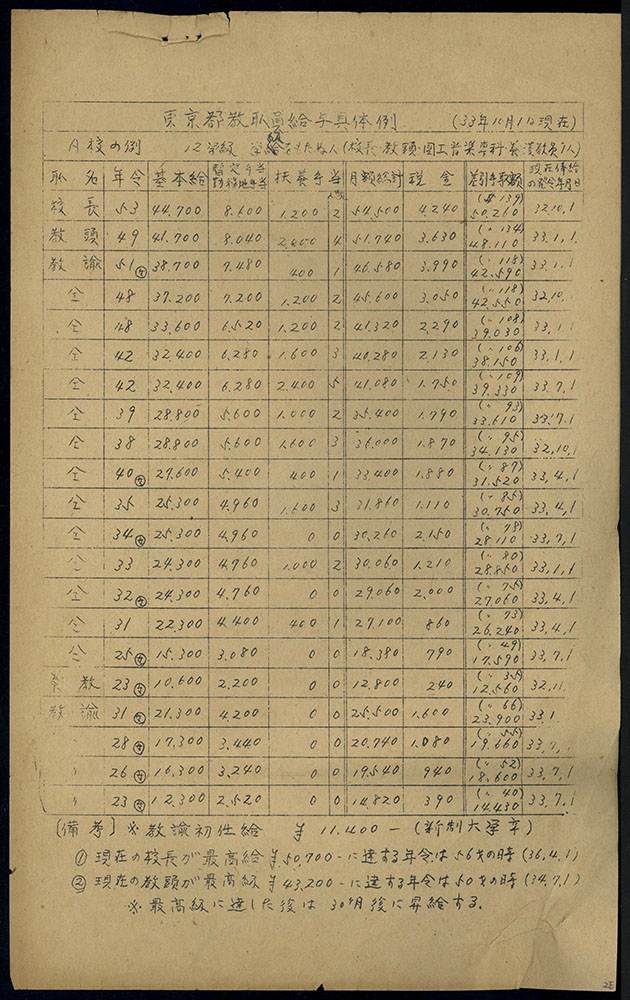 東京都教職員給与具体例 (33年10月1日現在)
A校の例 12学級 学級をもたぬ人(校長・教頭・図工音楽専科・養護教員5人)
職名 年令 基本給 暫定手当 勤務地手当 扶養手当 人数 月額総計 税金 差引手取額 現在俸給の発令年月日
校長 53 44,700 8,600 1,200 2 54,500 4,240 (〃139) 50,260 32,10,1
教頭 49 41,700 8,040 2,000 4 51,740 3,630 (〃134) 48,110 33,1,1
教諭 51女 38,700 7,480 400 1 46,580 3,990 (〃118) 42,590 33,1,1
仝 48 37,200 7,200 1,200 2 45,600 3,050 (〃118) 42,550 32,10,
仝 48 33,600 6,520 1,200 2 41,320 2,290 (〃108) 39,030 33,1,1
仝 42 32,400 6,280 1,600 3 40,280 2,130 (〃106) 38,150 33,1,1
仝 42 32,400 6,280 2,400 5 41,080 1,750 (〃109) 39,330 33,7,1
仝 39 28,800 5,600 1,000 2 35,400 1,790 (〃93) 33,610 33,7,1
仝 38 28,800 5,600 1,600 3 36,000 1,870 (〃95) 34,130 32,10,1
仝 40女 27,600 5,400 400 1 33,400 1,880 (〃87) 31,520 33,4,1
仝 35 25,300 4,960 1,600 3 31,860 1,110 (〃85) 30,750 33,4,1
仝 34女 25,300 4,960 0 0 30,260 2,150 (〃78) 28,110 33,7,1
仝 33 24,300 4,760 1,000 2 30,060 1,210 (〃80) 28,850 33,1,1
仝 32女 24,300 4,760 0 0 29,060 2,000 (〃75) 27,060 33,4,1
仝 31 22,300 4,400 400 1 27,100 860 (〃73) 26,240 33,4,1
仝 25女 15,300 3,080 0 0 18,380 790 (〃49) 17,590 33,7,1
養教 23女 10,600 2,200 0 0 12,800 240 (〃35) 12,560 32,11,
教諭 31女 21,300 4,200 0 0 25,500 1,600 (〃66) 23,900 33,1
28女 17,300 3,440 0 0 20,740 1,080 (〃55) 19,660 33,7,
〃 26女 16,300 3,240 0 0 19,540 940 (〃52) 18,600 33,7,1
〃 23女 12,300 2,520 0 0 14,820 390 (〃40) 14,430 33,7,1
[備考] ※教諭初任給 ¥11,400- (新制大学卒)
① 現在の校長が最高給¥50,700-に達する年令は56才の時(36,4,1)
② 現在の教頭が最高級¥43,200-に達する年令は50才の時(34,7,1)
※最高級に達した後は30ヶ月後に昇給する。